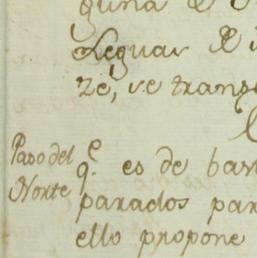 guna
Leguas
ze, se trans
Paso del
Norte
q.e es de
parados par
ello propone